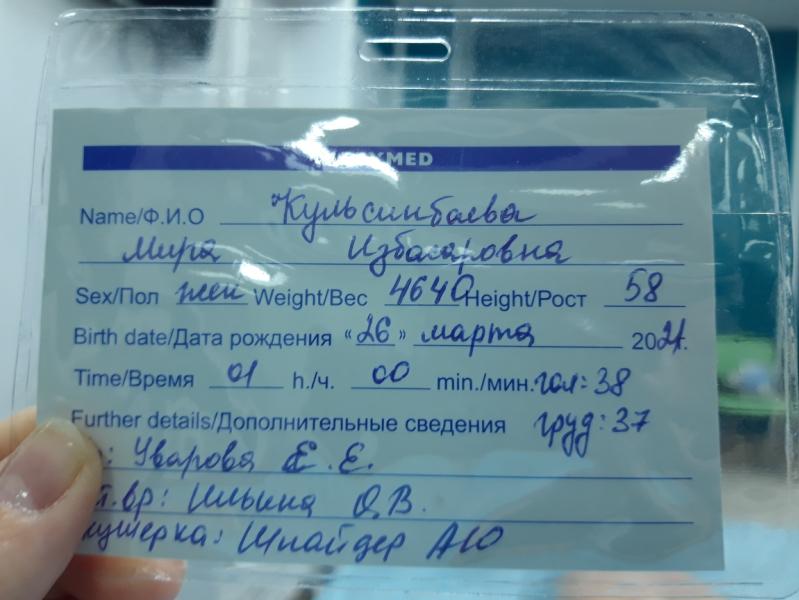 MED
Name/Ф.И.О Кульсинбаева
Мира Избасаровна
Sex/Пол жен Weight/Вес 4640 Height/Рост 58
Birth date/Дата рождения «26» марта 2021.
Time/Время 01 h./ч. 00 min./мин. гол: 38
Further details/Дополнительные сведения груд: 37
: Уварова Е. Е.
т. вр: Ильина О.В.
кушерка: Шпайдер АЮ